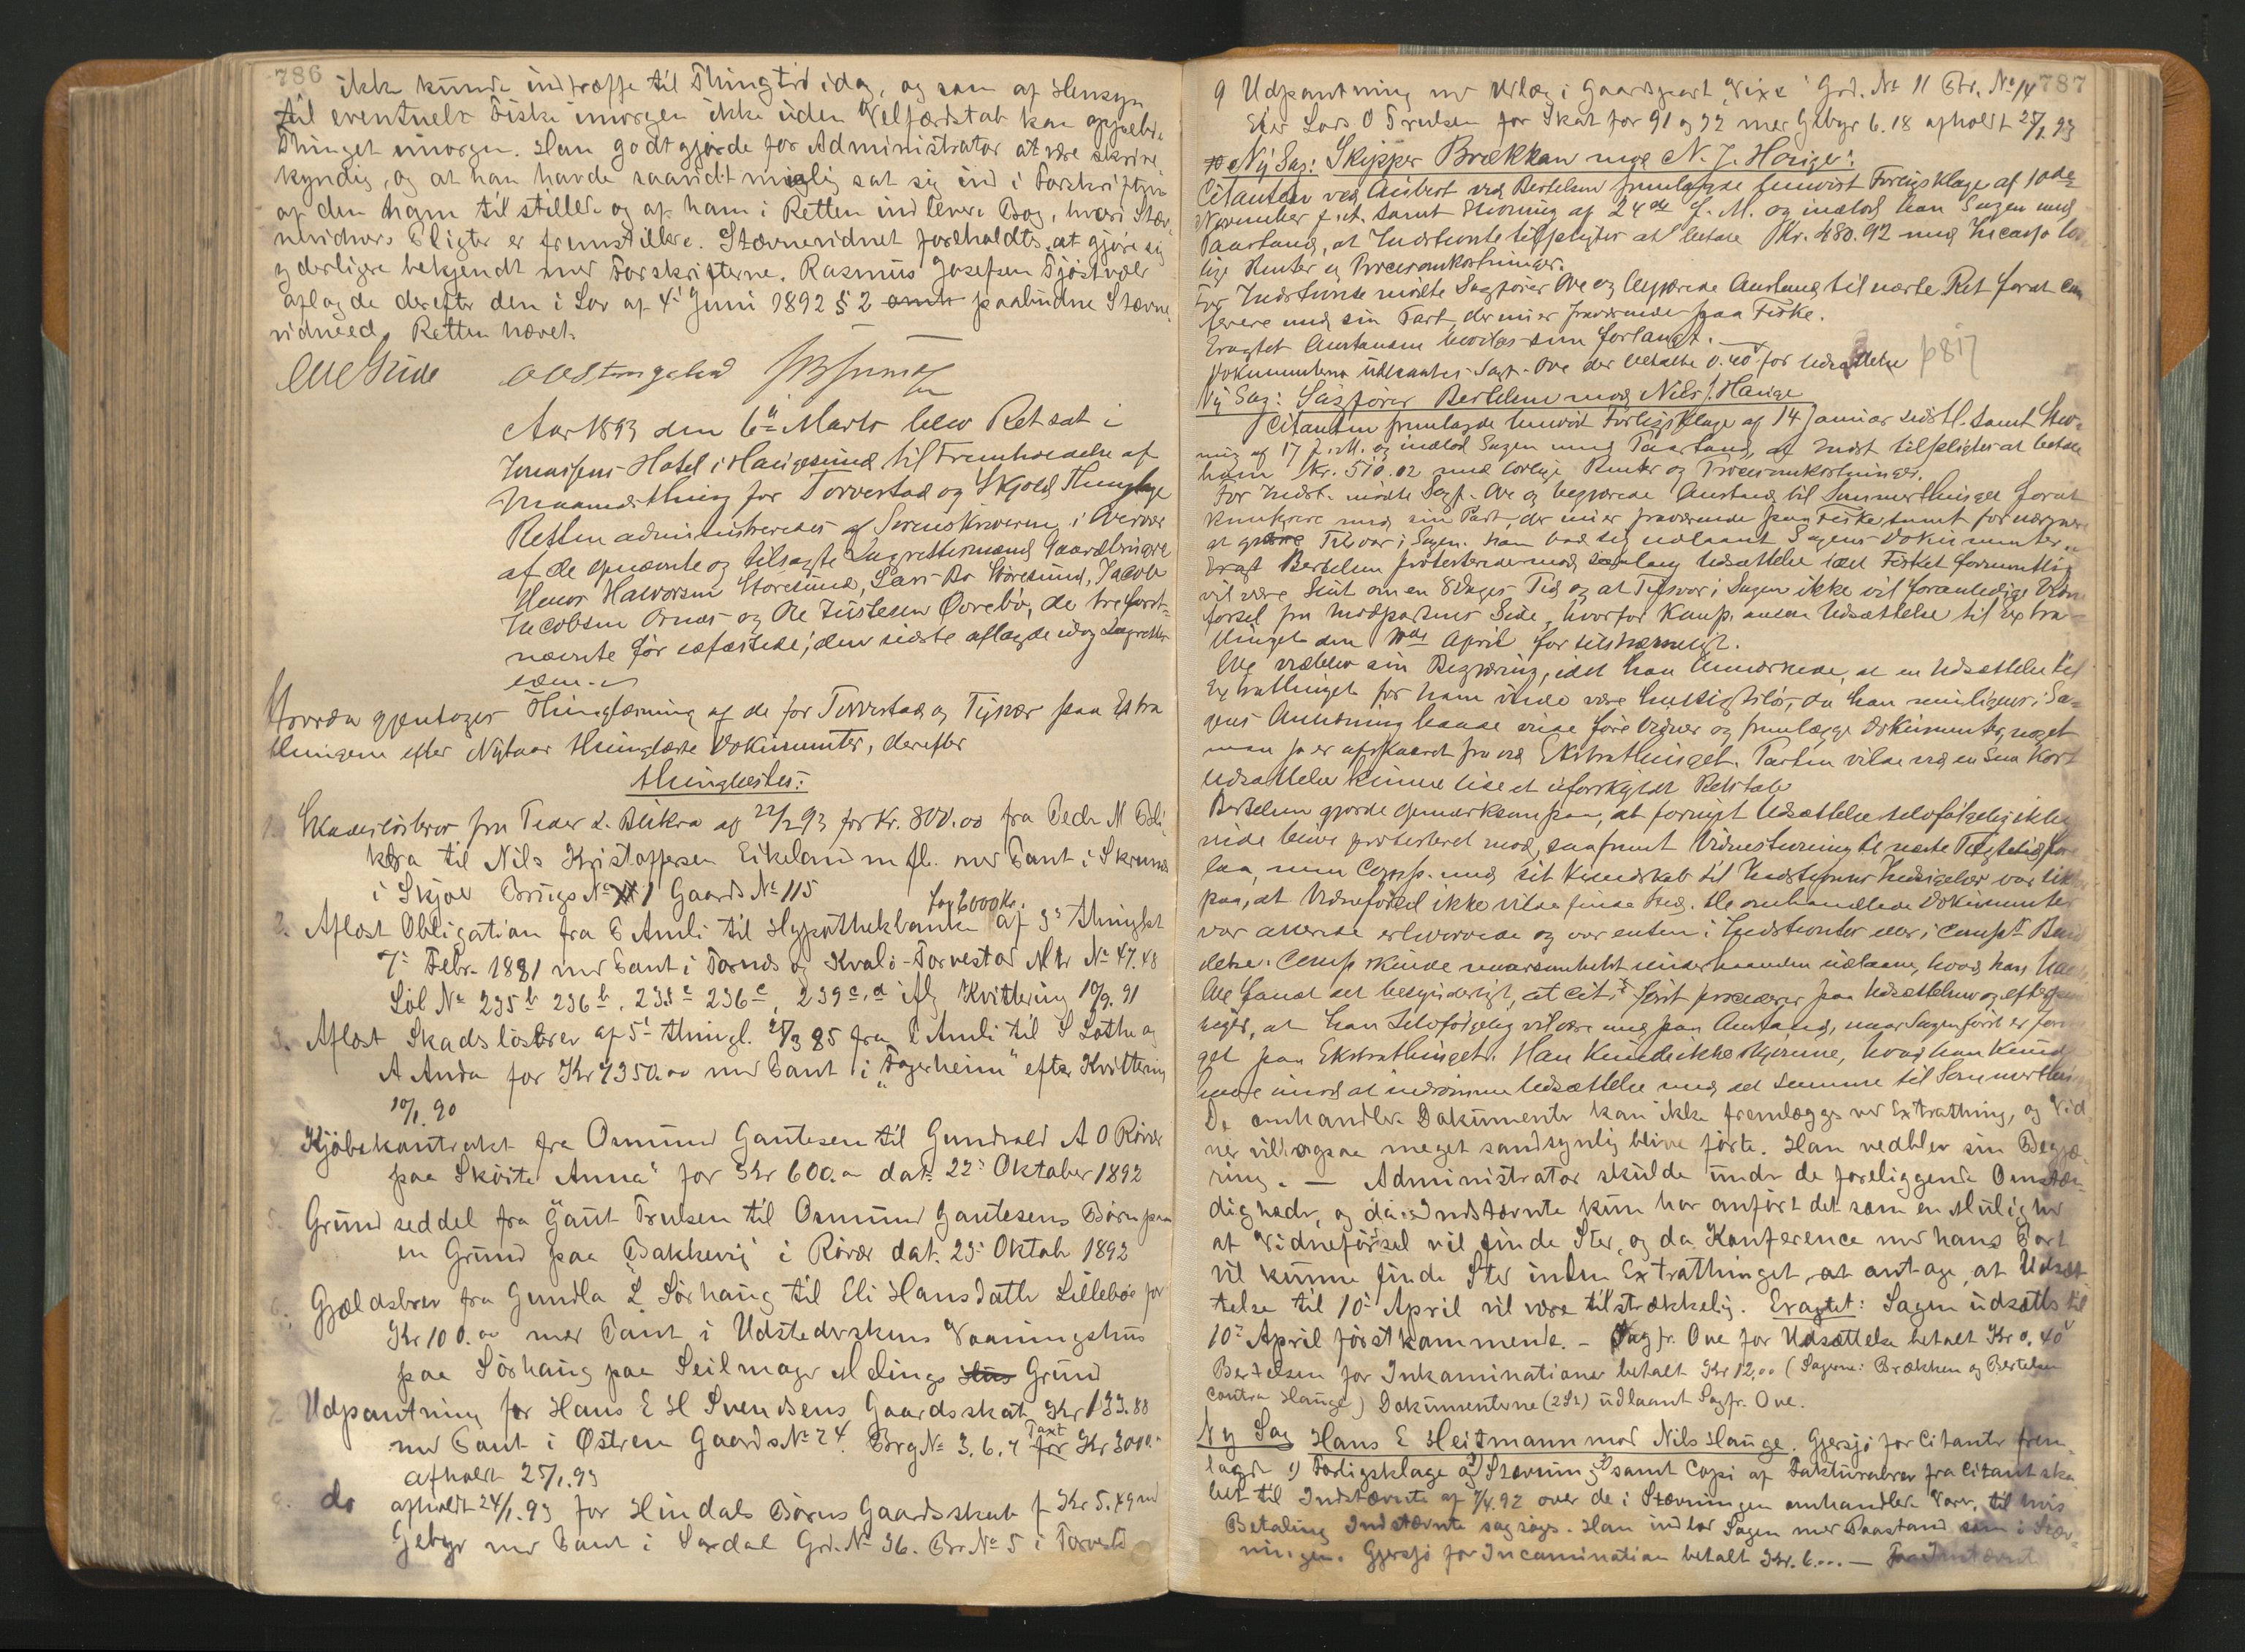 786
ikke kunde indtræffe til Thingtid idag, og som af Hensyn
til eventuelt Fiske imorgen ikke uden Velfærdstab kan oppebie
Thinget imorgen. Han godtgjorde for Administrator at være skrive
kyndig, og at han havde saavidt muelig sat sig ind i Forskriften
af den ham tilstillede og af ham i Retten indleverede Bog, hvori Stæv-
nevidners Pligter er fremstillede. Stævnevidnet foreholdtes at gjøre sig
yderligere bekjendt med Forskrifterne. Rasmus Josefsen Fjöstvedt
aflagde derefter den i Lov af 4de Juni 1892 § 2 paabudne Stævne
vidneed. Retten hævet.
Aar 1893 den 6te Marts blev Ret sat i
Jonassens Hotel i Haugesund til Fremholdelse af
Maanedsthing for Torvestad og Skjold Thinglag
Retten administreredes af Sorenskriveren i Overvær
af de opnævnte og tilsagte Lagrettesmænd Gaardbrugere
Halvorsen Storesund, Lars Storesund, Jacob
Jacobsen og Ole Justesen Övrebö, de tre først-
nævnte før edfæstede; den sidste aflagde idag Lagrettes-
eden.
Hvorda gjentages Thinglæsning af de for Torvestad og Tysvær paa Extra
thingene efter Nytaar thinglæste Dokumenter, derefter
thinglæstes:
1. Skadesløsbrev fra Peder L. Blikra af 22/2 93 for Kr. 800.00 fra Pedr M Bli-
kra til Nils Kristoffersen Eikeland m fl. med Pant i
i Skjold Brugs No 1 Gaards No 115
for 6000 Kr.
2. Aflæst Obligation fra E Amli til Hypothekbanken af 3' thinglæst
7' Febr. 1881 med Pant i Fornes og Kvalø-Torvestad Mtr No 47.48
Løb No 235b 236b. 235c 236c, 239c.d iflg Kvittering 10/9. 91
3. Aflæst Skadsløsbrev af 5' thingl. 25/3 85 fra E Amli til S Lothe og
A Anda for Kr 7350.00 med Pant i "Fagerheim" efter Kvittering
10/1. 90
4. Kjöbekontrakt fra Osmund Gautesen til Gundvald A O Rövær
paa Skøite "Anna" for Kr 600.00 dat. 22' Oktober 1892
5. Grundseddel fra Gaut Trulsen til Osmund Gautesens Børn paa
en Grund paa "Bakkevig" i Rövær dat. 25' Oktob 1892
6. Gjældsbrev fra Gundla L Sörhaug til Eli Hansdatter Lillebøe for
Kr 100.00 med Pant i Udstederskens Vaaningshus
paa Sörhaug paa Seilmager Melings Hus Grund
7. Udpantning for Hans E H Svendsens Gaardsskat Kr 133.88
med Pant i Østrem Gaards No 24 Brg No 3. 6. 7 Taxt for Kr 3000.-
afholdt 25/1. 93
8. do afholdt 24/1. 93 for Hindals Börns Gaardsskat f Kr 5.49 med
Gebyr med Pant i Sordal Grd. No 36. Br No 5 i Torvestd
787
9 Udpantning med Udlæg i Gaardpart "Vixe" Grd. No 11 Br. No 14
Eier Lars O Trulsen for Skat for 91 og 92 med Gebyr 6.18 afholdt 25/1 93
10 Ny Sag: Skipper Brækkan mod N. J. Hauge:
Citanten ved Bertelsen fremlagde henvist Forligsklage af 10de
November f. A. samt Stevning af 24de f. M. og indlod han Sagen med
Paastand, at Indstevnte tilpligtes at betale Kr. 480.92 med Incasso lov-
lige Renter og Procesomkostninger.
For Indstevnte mødte Sagfører Ove og begjærede Anstand til næste Ret forat con-
ferere med sin Part, der nu er fraværende paa Fiske.
Eragtet Anstanden bevilges som forlangt.
Dokumenterne udlaantes Sagf. Ove der betalte 0.40 for Udsættelse
p 817
Ny Sag: Sagfører Bertelsen mod Niels J. Hauge
Citanten fremlagde henvist Forligsklage af 14 Januar sidstl. samt Stev-
ning af 17 f. M. og indlod Sagen med Paastand, at Indst tilpligtes at betale
ham Kr. 510.02 med lovlige Renter og Procesomkostninger.
For Indst. mødte Sagf. Ove og begjærede Anstand til Sommerthinget forat
konferere med sin Part, der nu er fraværende paa Fiske samt for nærmere
at gjøre Tilsvar i Sagen. Han bad sig udlaant Sagens Dokumenter.
Bertelsen protesterede mod saalang Udsættelse idet Fisket formentlig
vil være Slut om en 8 Dages Tid og at Tilsvar i Sagen ikke vil foranledige Vidne-
førsel fra Modpartens Side, hvorfor Komp. anser Udsættelse til Extra-
thinget den 10de April for tilstrækkelig.
Ove vedblev sin Begjæring, idet han bemærkede, at en Udsættelse til
Extrathinget for ham vilde være hensigtsløs, da han muligens i Sa-
gens Anledning baade vilde føre Vidner og fremlægge Dokumenter, noget
man jo er afskaaret fra ved Extrathinget. Parten vilde ved en saa kort
Udsættelse kunne lide et uforskyldt Retstab
Bertelsen gjorde opmærksom paa, at fornyet Udsættelse selvfølgelig ikke
vilde blive protesteret mod, saafremt Vidnestevning til næste Tægtetid fore-
laa, men Comp. med sit Kjendskab til Indstevntes Indsigelser var sikker
paa, at Vidneførsel ikke vilde finde Sted. De omhandlede Dokumenter
var allerede erhvervede og var enten i Indstevntes eller i Comp. Besid-
delse. Comp. skulde udlaane, hvad han
Ove fandt det besynderligt, at Cit. først procederer paa Udsættelse og efterpaa
siger, at han selvfølgelig vil være med paa Anstand, naar Sagen først er
get paa Ekstrathinget. Han kunde ikke skjønne, hvad han kunde
have imod at indrømme Udsættelse med det samme til Sommerthing
De omhandlede Dokumenter kan ikke fremlægges ved Extrathing, og Vid-
ner vil ogsaa meget sandsynlig blive førte. Han vedblev sin Begjæ-
ring. — Administrator skulde under de foreliggende Omstæn-
digheder, og da Indstævnte kun har anført det som en Mulighed
at Vidneførsel vil finde Sted, og da Konference med hans Part
vil kunne finde Sted inden Extrathinget, at antage, at Udsæt-
telse til 10' April vil være tilstrækkelig. Eragtet: Sagen udsættes til
10' April førstkommende. - Sagfr. Ove for Udsættelse betalt Kr 0.40
Bertelsen for Inkaminationer betalt Kr 12,00 (Sagerne: Brækken og Bertelsen
contra Hauge) Dokumenterne (2 St) udlaant Sagfr. Ove.
Ny Sag Hans E Heitmann mod Nils Hauge. Gjersjö for Citanten frem-
lagde 1) Forligsklage og 2) Stævning 3) samt Copi af Fakturabrev fra Citantska
bet til Indstævnte af 7/4. 92 over de i Stævningen omhandlede Varer, til hvis
Betaling Indstævnte sagsøgs. Han indlod Sagen med Paastand som i Stæv-
ningen. Gjersjö for Incamination betalt Kr. 6... — For Indstævnte